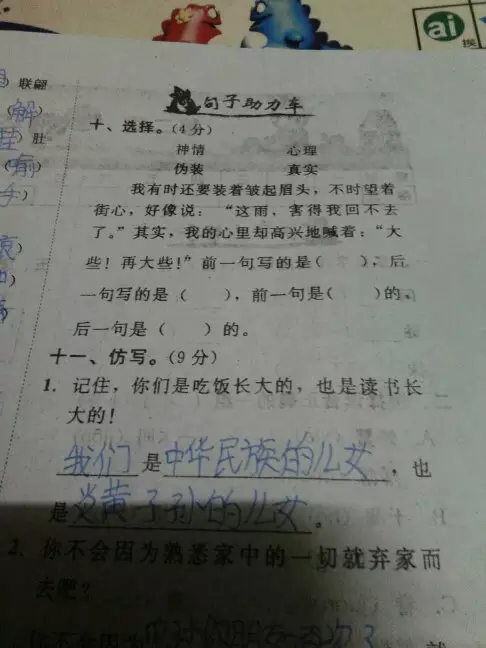 ai
换
联翩
解
肚
喻
手
句子助力车
十、选择。(4分)
神情 心理
伪装 真实
我有时还要装着皱起眉头，不时望着
街心，好像说：“这雨，害得我回不去
了。”其实，我的心里却高兴地喊着：“大
些！再大些！”前一句写的是( )，后
一句写的是( )，前一句是( )的，
后一句是( )的。
十一、仿写。(9分)
1. 记住，你们是吃饭长大的，也是读书长
大的！
我们是中华民族的儿女，也
是炎黄子孙的儿女。
2. 你不会因为熟悉家中的一切就弃家而
去吧？
你不会因为